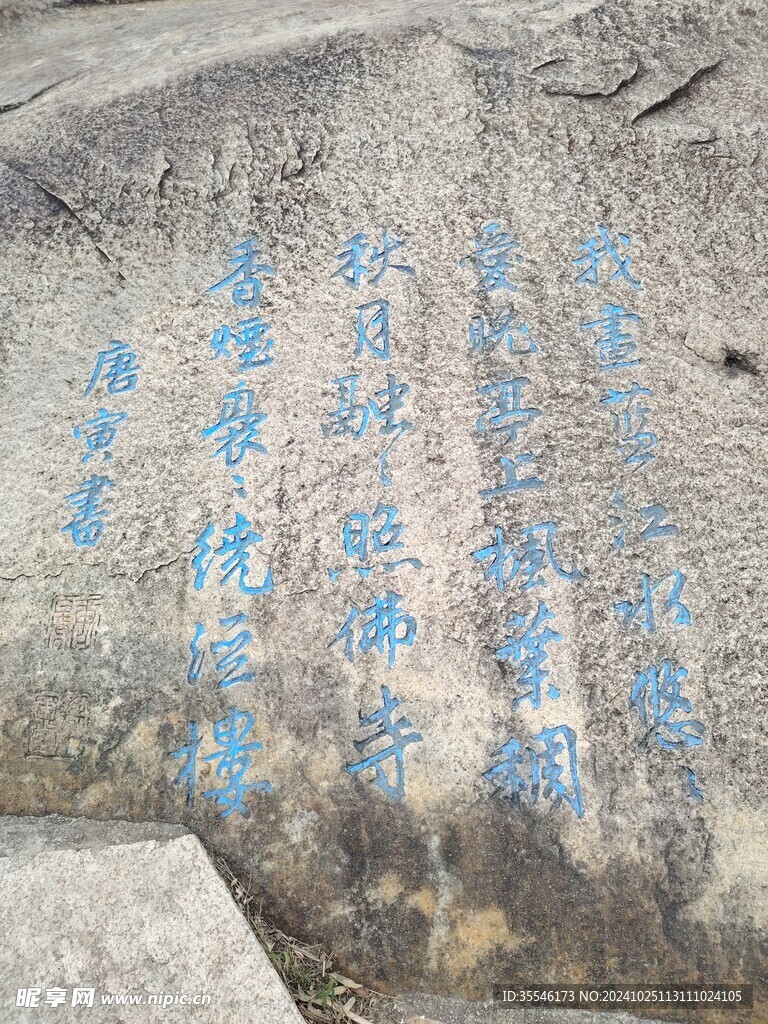 我畫藍江水悠〻
愛晚亭上楓葉稠
秋月融〻照佛寺
香煙裊〻繞涇樓
唐寅書
昵享网 www.nipic.cn
ID:35546173 NO:20241025113111024105